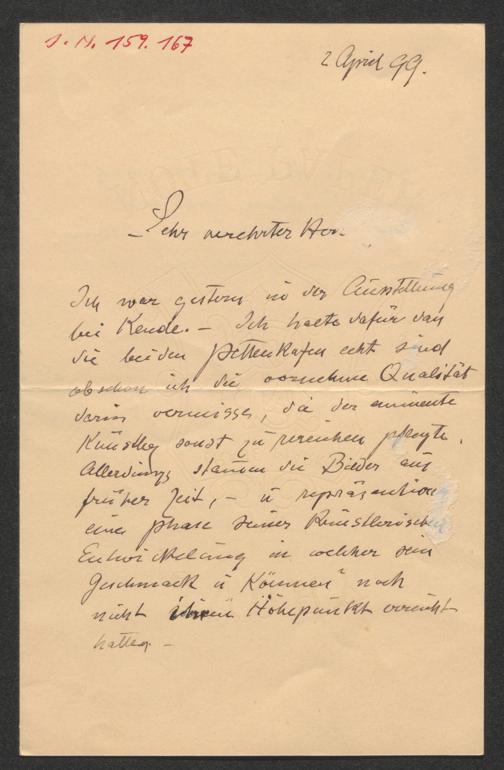 J.N. 159.167
2 April 99.
Sehr verehrter Herr.
Ich war gestern in der Ausstellung
bei Kende. – Ich halte dafür dass
die beiden Pettenkofen echt sind
obschon ich die vornehme Qualität
darin vermisse, die der eminente
Künstler sonst zu erreichen pflegte.
Allerdings stamen die Bilder aus
früher Zeit, – u repräsentiren
eine Phase seiner künstlerischen
Entwickelung in welcher sein
Geschmack u Können noch
nicht ihren Höhepunkt erreicht
hatten –